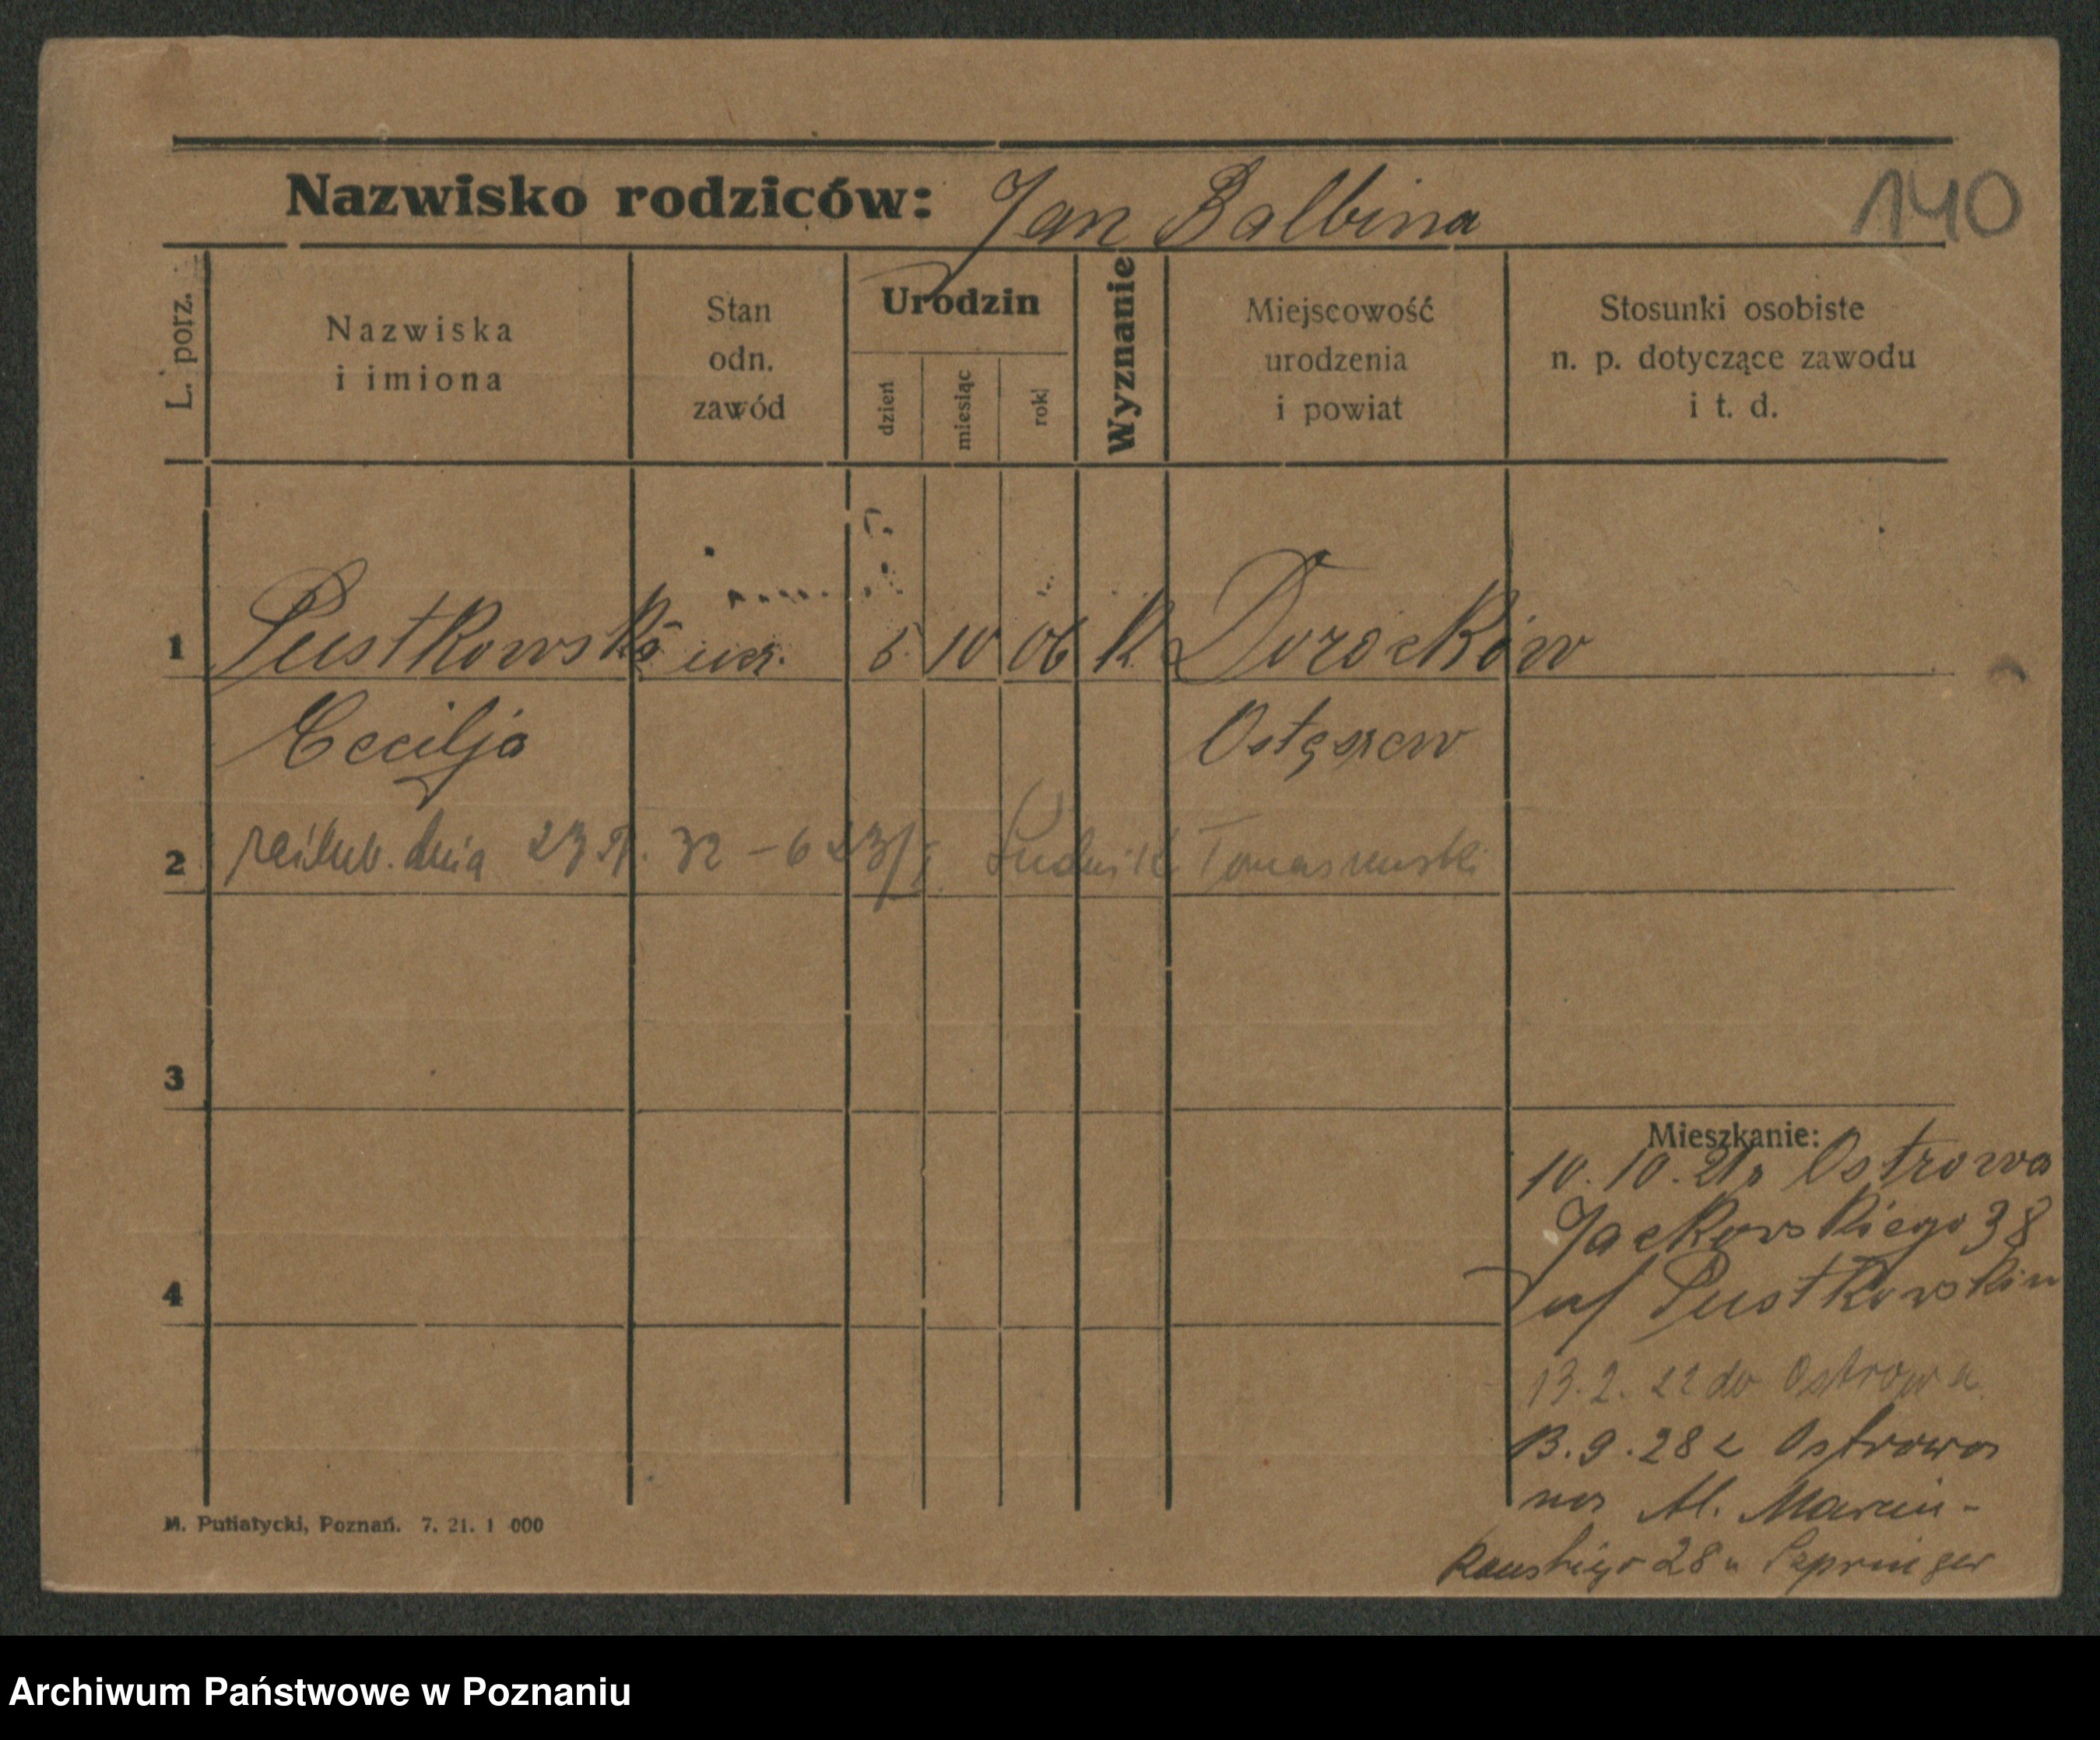 140
Nazwisko rodziców: Jan Balbina
L. porz.
Nazwiska i imiona
Stan odn. zawód
Urodzin
dzień miesiąc rok
Wyznanie
Miejscowość urodzenia i powiat
Stosunki osobiste n. p. dotyczące zawodu i t. d.
1 Pustkowska ucz. 5. 10 06 K
Cecilja
2 dnia 23 32 Tomaszewski
3
4
Mieszkanie:
10. 10. 21 z Ostrowa
Jackowskiego 38
Pustkowskim
13. 2. 22 do Ostrowa
13. 9. 28 z Ostrowa
na Al. Marcin-
kowskiego 28 u Szpringer
M. Putiatycki, Poznań. 7. 21. 1 000
Archiwum Państwowe w Poznaniu